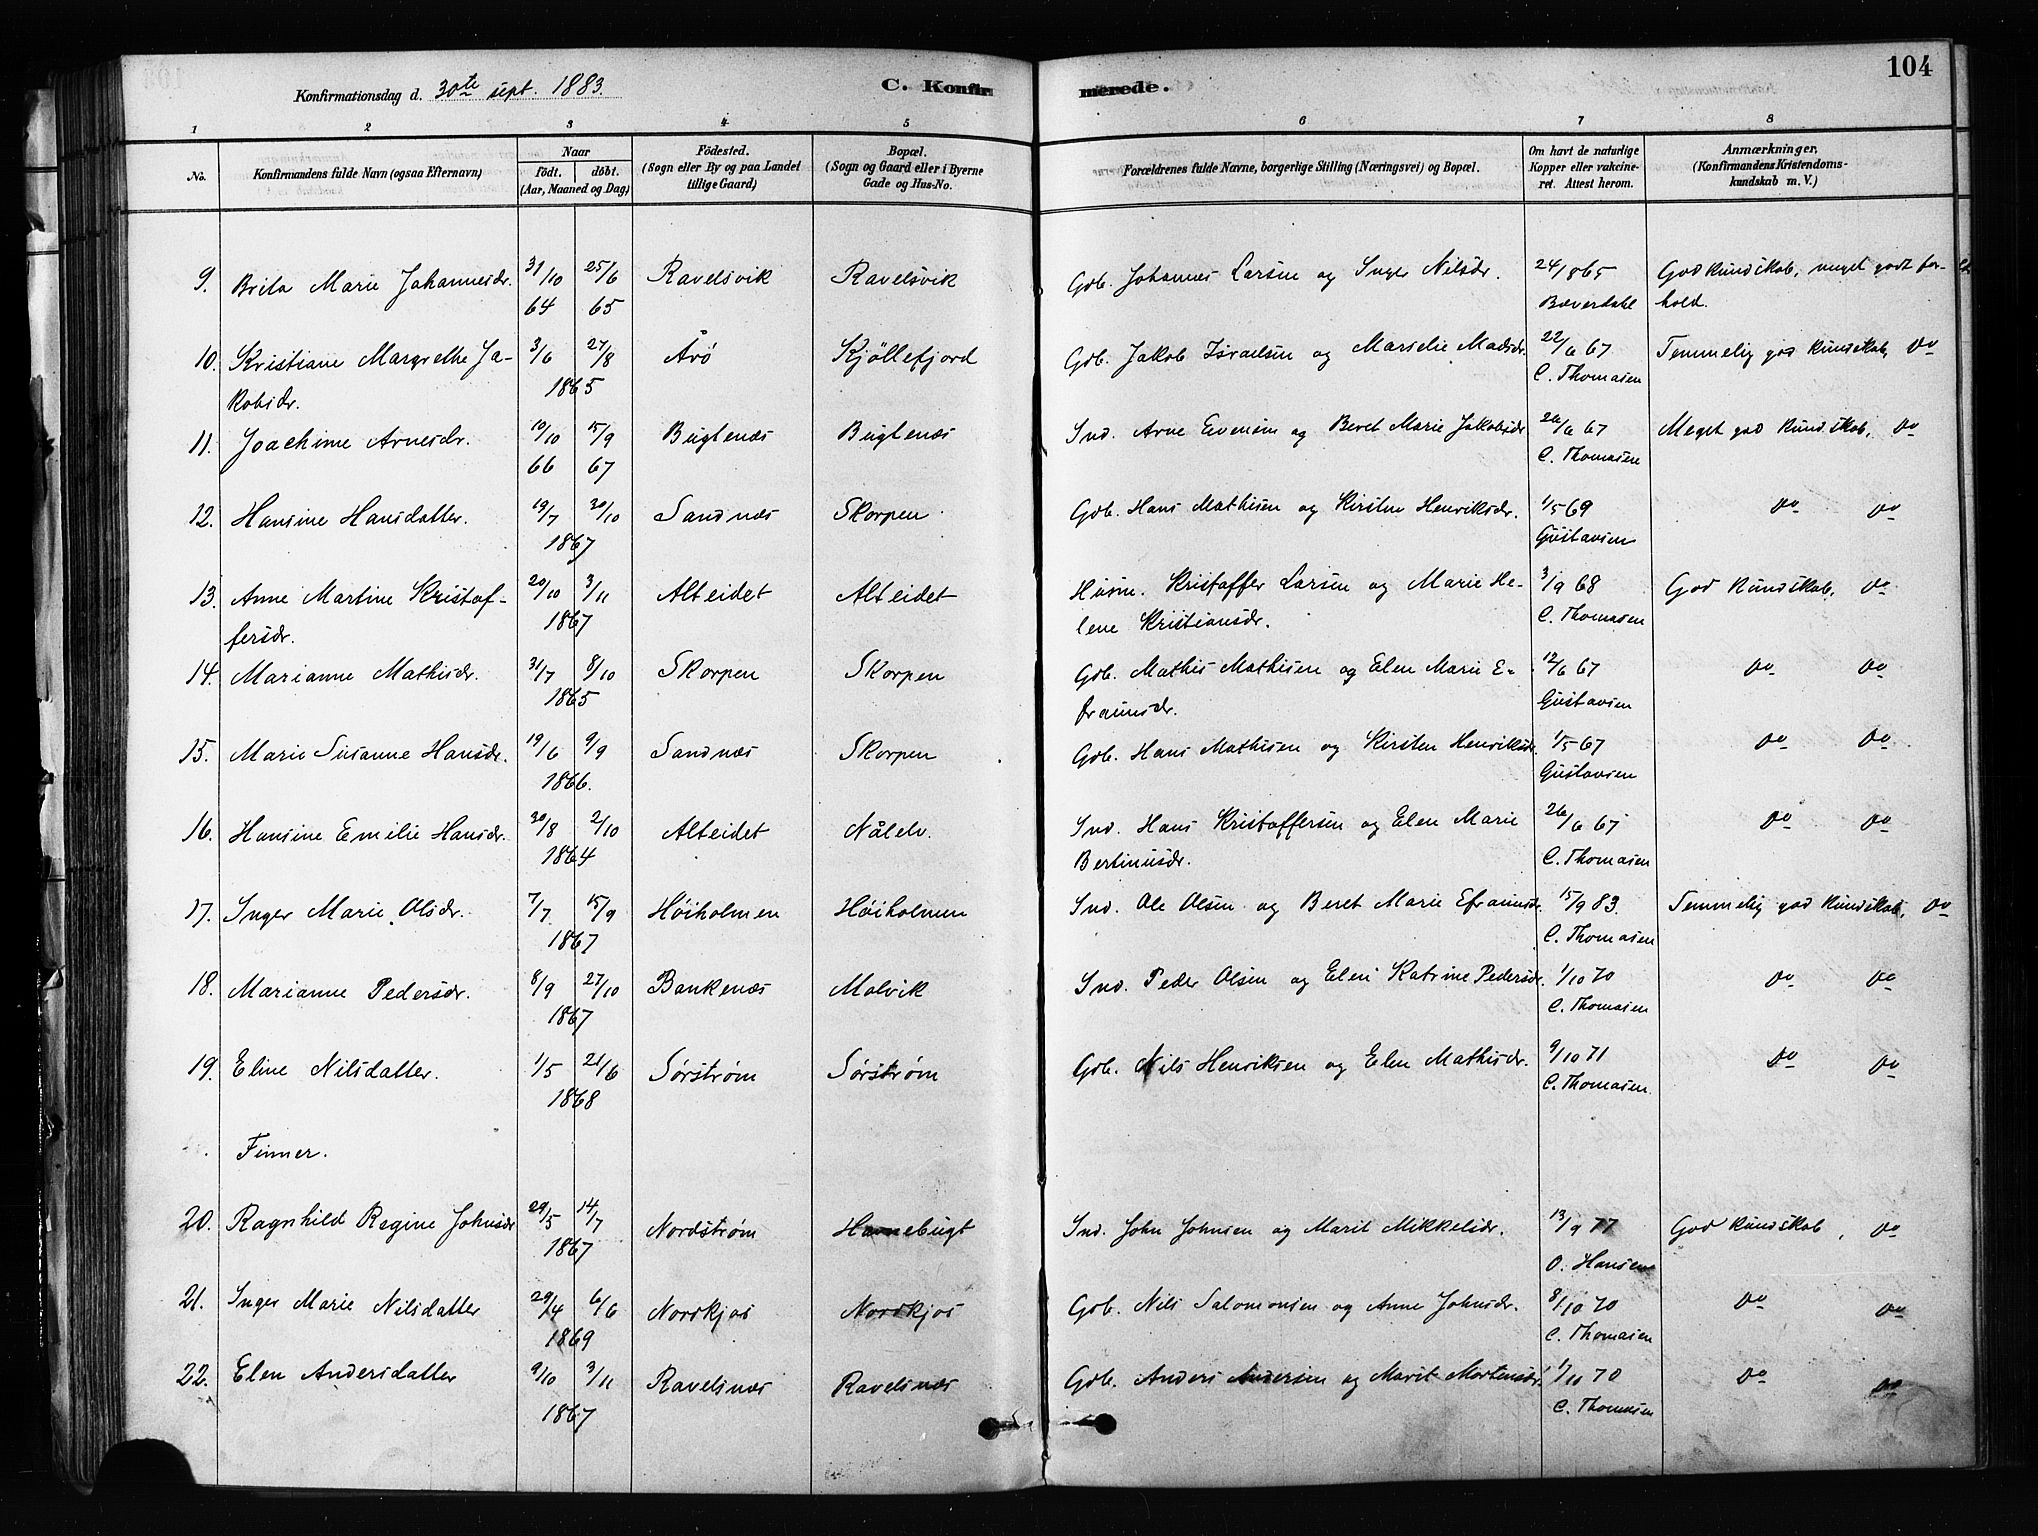 Konfirmationsdag d. 30te sept. 1883.
C. Konfirmerede.
104
1 2 3 4 5 6 7 8
No.
Konfirmandens fulde Navn (ogsaa Efternavn)
Naar
født. døbt.
(Aar, Maaned og Dag)
Födested.
(Sogn eller By og paa Landet
tillige Gaard)
Bopæl.
(Sogn og Gaard eller i Byerne
Gade og Hus-No.
Forældrenes fulde Navne, borgerlige Stilling (Næringsvei) og Bopæl.
Om havt de naturlige
Kopper eller vakcine-
ret. Attest herom.
Anmærkninger,
(Konfirmandens Kristendoms-
kundskab m. V.)
9. Brita Marie Johannesdr. 31/10 25/6 Ravelsvik Ravelsvik Gdb. Johannes Larsen og Inger Nilsdr. 24/8 65 God kundskab, meget godt for-
64 65 Bæverdahl hold.
10. Kristiane Margrethe Ja- 3/6 27/8 Årö Kjöllefjord Gdb. Jakob Israelsen og Marselie Madsdr. 22/6 67 Temmelig god kundskab, do
kobsdr. 1865 C. Thomasen
11. Joachime Arnesdr. 10/10 15/9 Bugtenæs Bugtenæs Ind. Arne Evensen og Beret Marie Jakobsdr 26/6 67 Meget god kundskab, do
66 67 C. Thomasen
12. Hansine Hansdatter. 19/7 20/10 Sandnæs Skorpen Gdb. Hans Mathisen og Kirsten Henriksdr. 1/5 69 do do
1867 Gustavsen
13. Anne Martine Kristof- 20/10 3/11 Alteidet Alteidet Husm. Kristoffer Larsen og Marie He- 3/9 68 God kundskab, do
fersdr. 1867 lene Kristiansdr. C. Thomasen
14. Marianne Mathisdr. 31/7 8/10 Skorpen Skorpen Gdb. Mathis Mathisen og Elen Marie E- 12/6 67 do do
1865 fraimsdr. Gustavsen
15. Marie Susanne Hansdr. 19/6 9/9 Sandnæs Skorpen Gdb. Hans Mathisen og Kirsten Henriksdr. 1/5 67 do do
1866. Gustavsen
16. Hansine Emilie Hansdr. 30/8 2/10 Alteidet Nålelv. Ind. Hans Kristoffersen og Elen Marie 26/6 67 do do
1864 Bertinusdr. C. Thomasen
17. Inger Marie Olsdr. 7/7 15/9 Høiholmen Høiholmen Ind. Ole Olsen og Beret Marie Efraimsdr. 15/9 83. Temmelig god kundskab, do
1867 C. Thomasen
18. Marianne Pedersdr. 8/9 27/10 Bankenæs Malvik Ind. Peder Olsen og Elen Katrine Pedersdr. 1/10 70 do do
1867 C. Thomasen
19. Eline Nilsdatter. 1/5 21/6 Sørstrøm Sørstrøm Gdb. Nils Henriksen og Elen Mathisdr. 9/10 71 do do
1868 C. Thomasen
Finner.
20. Ragnhild Regine Johnsdr 29/5 14/7 Nordstrøm Havnebugt Ind. John Johnsen og Marit Mikkelsdr. 13/9 77 God kundskab, do
1867 O. Hansen
21. Inger Marie Nilsdatter 29/4 6/6 Nordkjos Nordkjos Gdb. Nils Salomonsen og Anne Johnsdr. 8/10 70 do do
1869 C. Thomasen
22. Elen Andersdatter 9/10 3/11 Ravelsnæs Ravelsnæs Gdb. Anders Andersen og Marit Mortensdr. 1/10 70 do do
1867 C. Thomasen